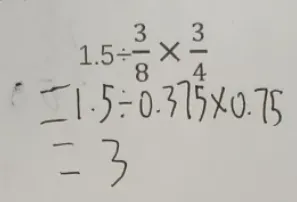 1.5÷3/8×3/4
=1.5÷0.375×0.75
=3